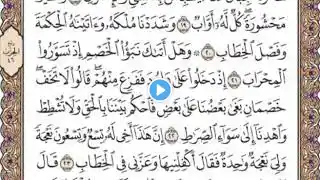 مَحْشُورَةً كُلٌّ لَهُ أَوَّابٌ ۝١٩ وَشَدَدْنَا مُلْكَهُ وَءَاتَيْنَٰهُ الْحِكْمَةَ
وَفَصْلَ الْخِطَابِ ۝٢٠ وَهَلْ أَتَىٰكَ نَبَؤُا الْخَصْمِ إِذْ تَسَوَّرُوا
الْمِحْرَابَ ۝٢١ إِذْ دَخَلُوا عَلَىٰ دَاوُدَ فَفَزِعَ مِنْهُمْ قَالُوا لَا تَخَفْ
خَصْمَانِ بَغَىٰ بَعْضُنَا عَلَىٰ بَعْضٍ فَاحْكُم بَيْنَنَا بِالْحَقِّ وَلَا تُشْطِطْ
وَاهْدِنَا إِلَىٰ سَوَاءِ الصِّرَٰطِ ۝٢٢ إِنَّ هَٰذَا أَخِي لَهُ تِسْعٌ وَتِسْعُونَ نَعْجَةً
وَلِيَ نَعْجَةٌ وَٰحِدَةٌ فَقَالَ أَكْفِلْنِيهَا وَعَزَّنِي فِي الْخِطَابِ ۝٢٣ قَالَ